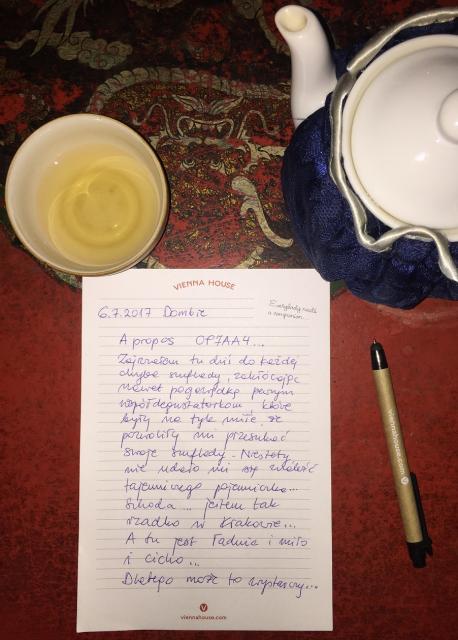 VIENNA HOUSE
Everybody needs
a companion.
6.7.2017 Dombie
A propos OP7AA4...
Zajrzałam tu dziś do każdej
chyba szuflady, zakłócając
nawet pogawędkę pewnym
współdegustatorkom, które
były na tyle miłe, że
pozwoliły mi przeszukać
swoje szuflady. Niestety
nie udało mi się znaleźć
tajemniczego pojemniczka...
Szkoda... jestem tak
rzadko w Krakowie...
A tu jest ładnie i miło
i cicho...
Dlatego może to wystarczy...
viennahouse.com
viennahouse.com